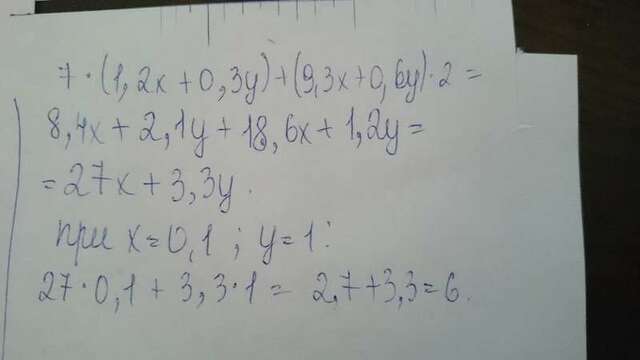 7·(1,2x+0,3y)+(9,3x+0,6y)·2=
8,4x+2,1y+18,6x+1,2y=
=27x+3,3y.
при x=0,1; y=1:
27·0,1+3,3·1= 2,7+3,3=6.